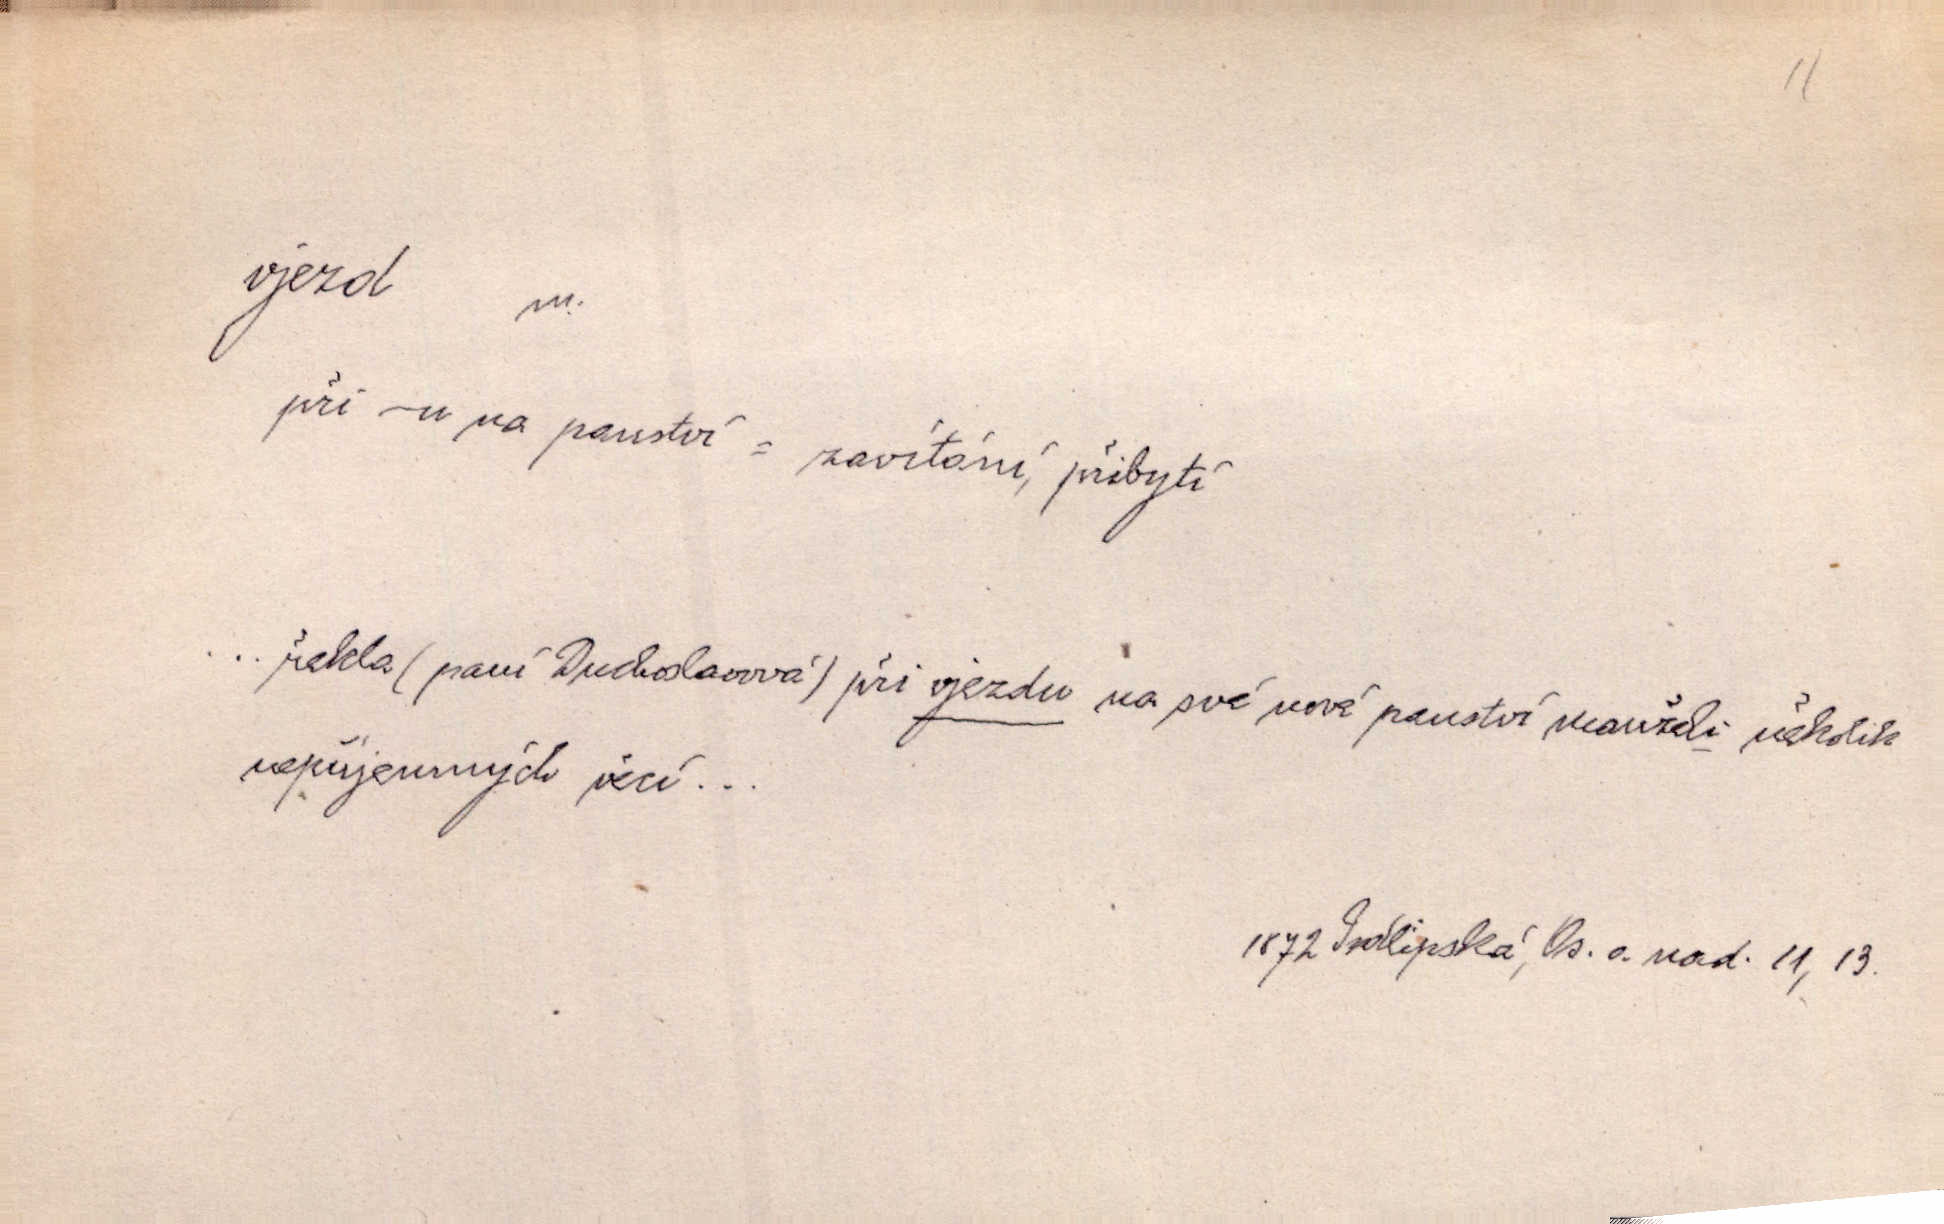 11
vjezd m.
při ~u na panství = zavítání, přibytí
... řekla (paní Duchoslavová) při vjezdu na své nové panství manželi několik
nepříjemných věcí ...
1872 Podlipská, Os. a nad. 11, 13.